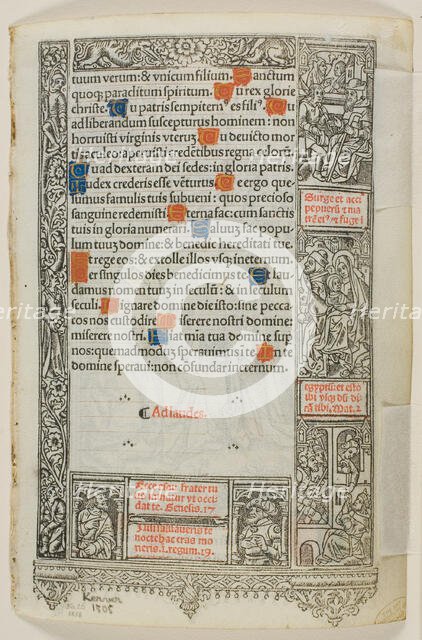 tuum verum: & vnicum filium. Sanctum
quoq; paraclitum spiritum. Tu rex glorie
christe. Tu patris sempitern⁹ es fili⁹. Tu
ad liberandum suscepturus hominem: non
horruisti virginis vterū. Tu deuicto mor
tis aculeo: aperuisti credētibus regna celorū.
Tu ad dexteram dei sedes: in gloria patris.
Iudex crederis esse vēturus. Te ergo que
sumus famulis tuis subueni: quos precioso
sanguine redemisti. Eterna fac cum sanctis
tuis in gloria numerari. Saluū fac popu
lum tuuz domine: & benedic hereditati tue.
Et rege eos: et extolle illos vsq; in eternum.
Per singulos dies benedicimus te. Et lau
damus nomen tuum in seculū: & in seculum
seculi. Dignare domine die isto: sine pecca
to nos custodire. Miserere nostri domine:
miserere nostri. Fiat mia tua domine sup
nos: quemadmoduz sperauimus in te. In te
domine speraui: non cōfundar in eternum.
Ad laudes.
Surge et acci
pe puerū & ma
trē ei⁹ & fuge ī
egyptū: et esto
ibi vsq; dū di
cā tibi. Mat. 2
Ecce esau frater tu
us minatur vt occi
dat te. Genesis. 27
nocte hac cras mo
rieris. 1. regum. 19.
Kerver
1505
Heritage
Heritage
Heritage
Heritage
Heritage
Heritage